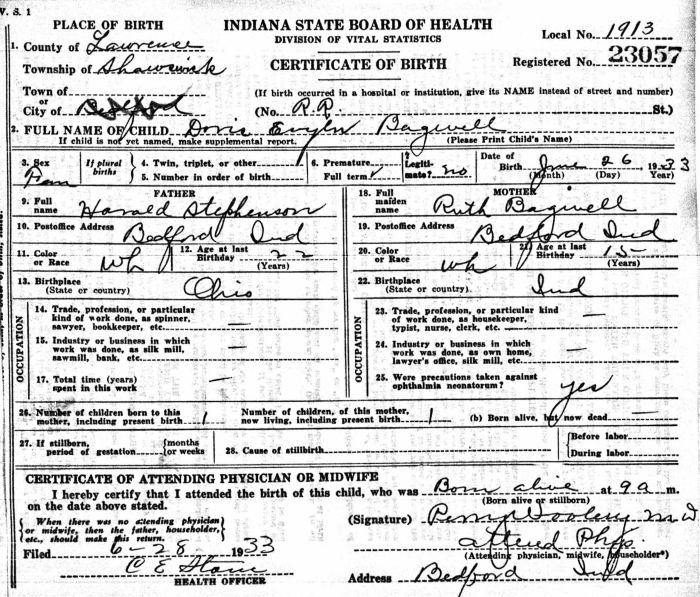 V. S. 1
PLACE OF BIRTH
INDIANA STATE BOARD OF HEALTH
DIVISION OF VITAL STATISTICS
CERTIFICATE OF BIRTH
Local No. 1913
Registered No. 23057
1. County of Lawrence
Township of Shawswick
Town of
or
City of Bedford
(If birth occurred in a hospital or institution, give its NAME instead of street and number)
(No. R.R. St.)
2. FULL NAME OF CHILD Doris Evyln Bagwell
If child is not yet named, make supplemental report. (Please Print Child's Name)
3. Sex Fem
If plural births
4. Twin, triplet, or other
5. Number in order of birth
6. Premature
Full term ✓
7. Legitimate? no
8. Date of Birth June 26 1933
(Month) (Day) (Year)
FATHER
9. Full name Harald Stephenson
10. Postoffice Address Bedford Ind
11. Color or Race Wh
12. Age at last Birthday 22 (Years)
13. Birthplace (State or country) Ohio
OCCUPATION
14. Trade, profession, or particular kind of work done, as spinner, sawyer, bookkeeper, etc. —
15. Industry or business in which work was done, as silk mill, sawmill, bank, etc. —
17. Total time (years) spent in this work —
MOTHER
18. Full maiden name Ruth Bagwell
19. Postoffice Address Bedford Ind
20. Color or Race Wh
21. Age at last Birthday 15 (Years)
22. Birthplace (State or country) Ind
OCCUPATION
23. Trade, profession, or particular kind of work done, as housekeeper, typist, nurse, clerk, etc. —
24. Industry or business in which work was done, as own home, lawyer's office, silk mill, etc. —
25. Were precautions taken against ophthalmia neonatorum? yes
26. Number of children born to this mother, including present birth 1
Number of children, of this mother, now living, including present birth 1
(b) Born alive, but now dead —
27. If stillborn, period of gestation {months or weeks
28. Cause of stillbirth
{Before labor
During labor
CERTIFICATE OF ATTENDING PHYSICIAN OR MIDWIFE
I hereby certify that I attended the birth of this child, who was Born alive at 9 a m.
on the date above stated. (Born alive or stillborn)
{When there was no attending physician or midwife, then the father, householder, etc., should make this return.}
(Signature) Woolery M D
attend Phys
(Attending physician, midwife, householder*)
Filed 6-28 1933
C E Stone
HEALTH OFFICER
Address Bedford Ind